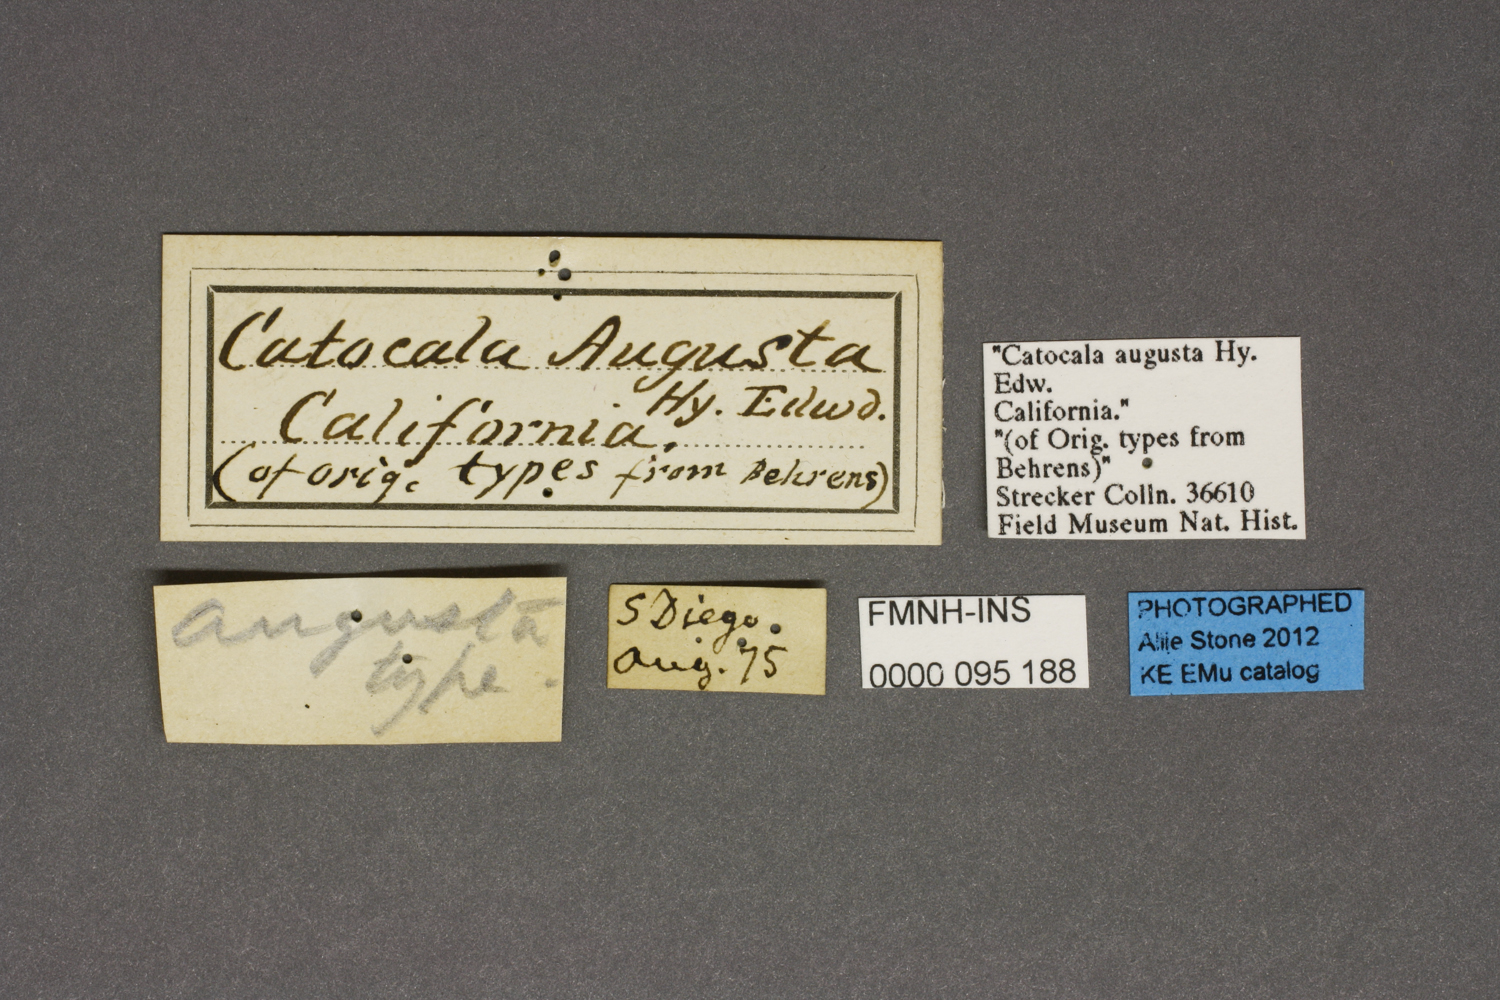 Catocala Augusta
Hy. Edwd.
California.
(of orig. types from Behrens)
"Catocala augusta Hy.
Edw.
California."
"(of Orig. types from
Behrens)"
Strecker Colln. 36610
Field Museum Nat. Hist.
augusta
type.
S Diego.
Aug. 75
FMNH-INS
0000 095 188
PHOTOGRAPHED
Allie Stone 2012
KE EMu catalog